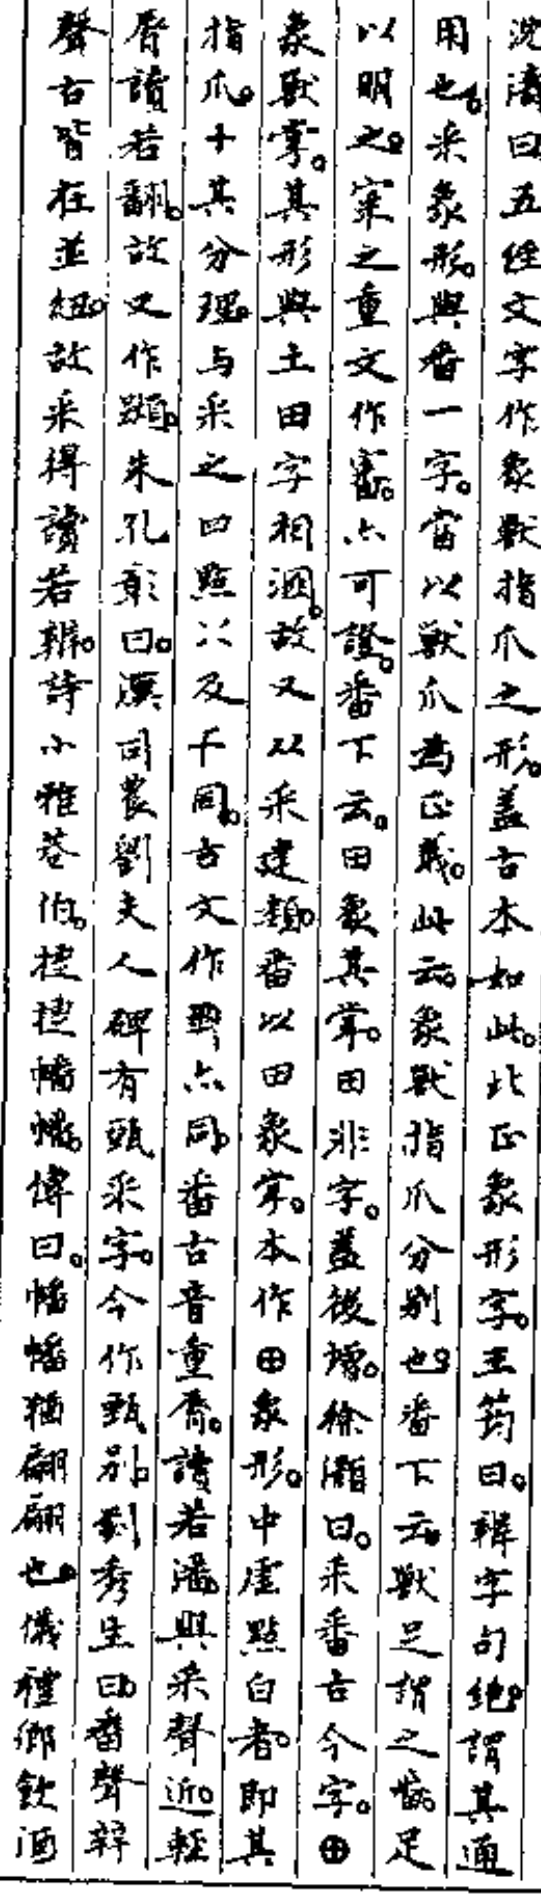 沈濤曰五經文字作象獸指爪之形。盖古本如此。此正象形字。王筠曰。辨字句絶。謂其通
用也。釆象形。與番一字。當以獸爪為正義。此云。象獸指爪分别也。番下云。獸足謂之番。足
以明之。寀之重文作審。亦可證。番下云。田象其掌。田非字。盖後增。徐灝曰。釆番古今字。⊕
象獸掌。其形與土田字相溷。故又从釆建類。番以田象掌。本作⊕象形。中虛點白者。即其
指爪。十其分理。与釆之四點以及千同。古文作𠂽亦同。番古音重脣。讀若潘。與釆聲近。輕
脣讀若翻。故又作蹞。朱孔彰曰。漢司農劉夫人碑有頭釆字。今作甄别。劉秀生曰。番聲辡
聲古皆在並紐。故釆得讀若辨。詩小雅巷伯。捷捷幡幡。傳曰。幡幡猶翩翩也。儀禮鄉飲酒